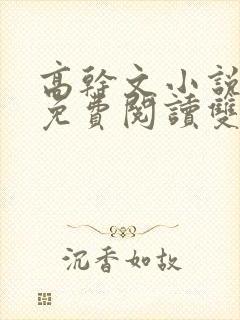 高幹文小說
免費閱讀雙
沉香如故